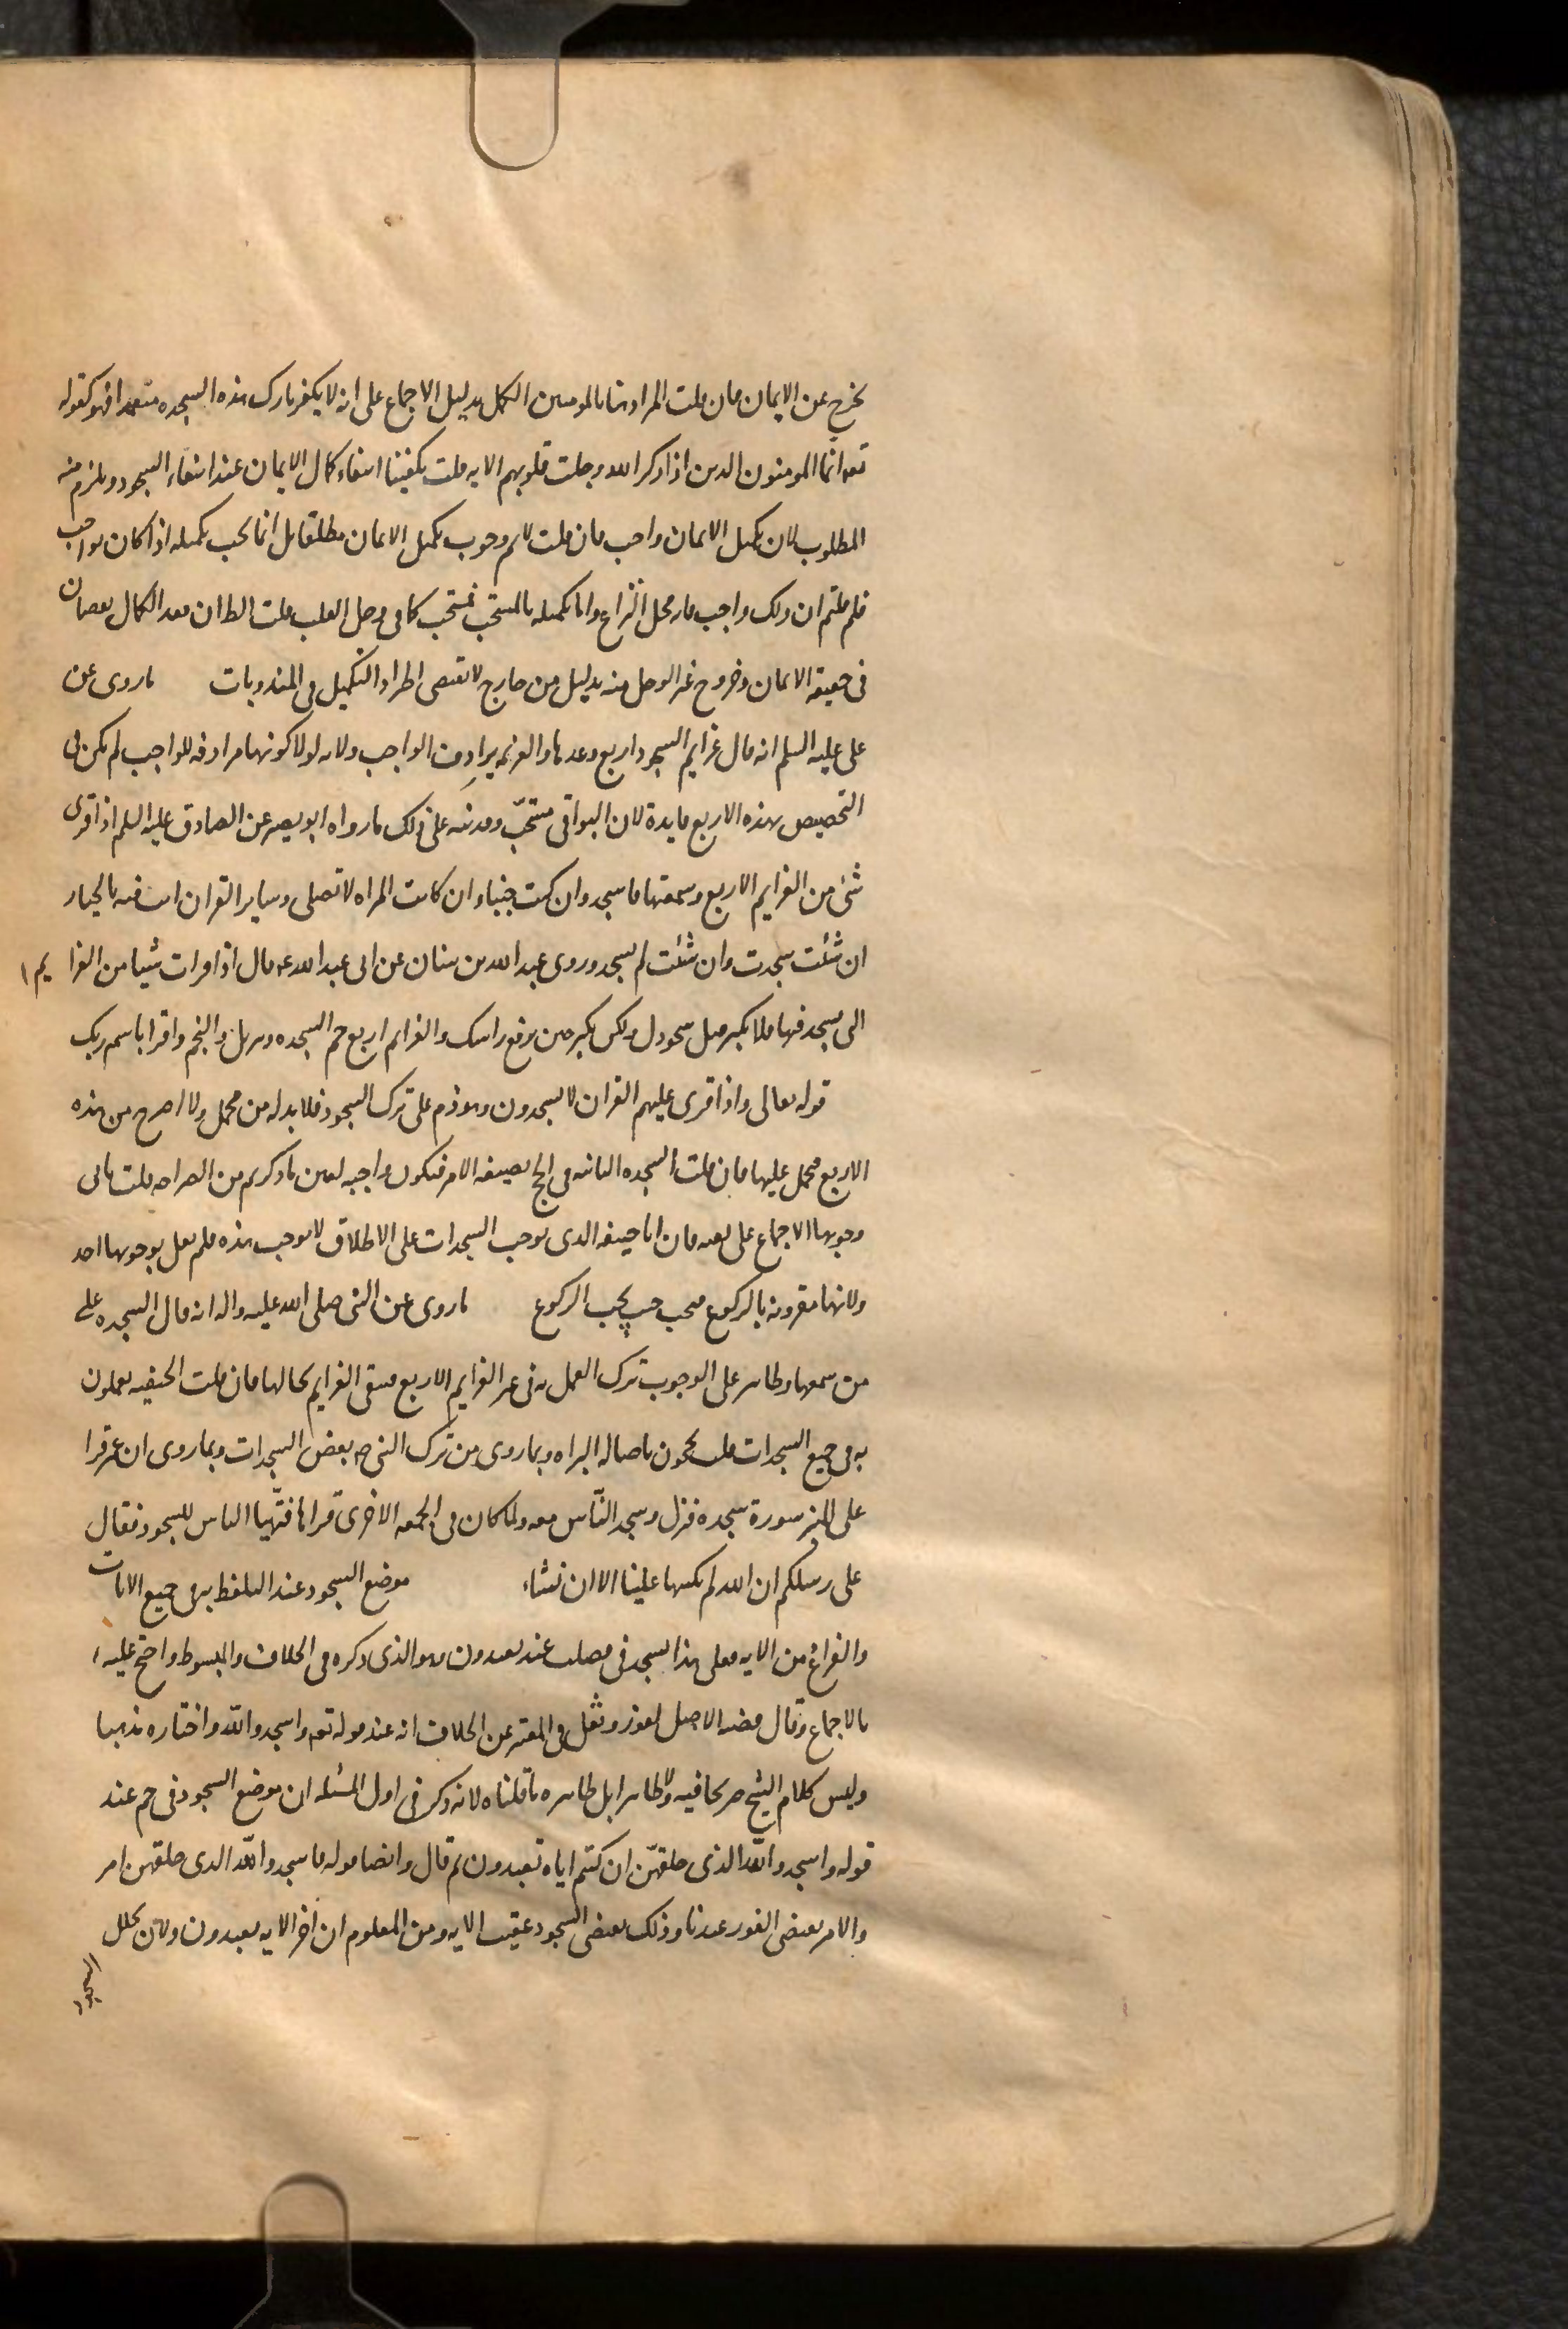 يخرج عن الايمان فان قلت المراد هنا بالمومنين الكمل بدليل الاجماع على انه لا يكفر تارك هذه السجده متعمدا فهو كقوله
تعه انما المومنون الذين اذا ذكر الله وجلت قلوبهم الايه قلت يكفينا انتفاء كمال الايمان عند انتفاء السجود ويلزم منه
المطلوب لان تكميل الايمان واجب فان قلت لانم وجوب تكميل الايمان مطلقا بل انما يجب تكميله اذا كان بواجب
فلم قلتم ان ذلك واجب فانه محل النزاع واما تكميله بالمستحب فمستحب كما فى وجل القلب قلت الظ ان فقد الكمال نقصان
فى حقيقه الايمان وخروج غير الوجل منه بدليل من خارج لا يقتضى اطراد التكميل فى المندوبات ما روى عن
على عليه السلم انه قال عزايم السجود اربع وعدها والعزيمه يرادف الواجب ولانه لولا كونها مرادفه للواجب لم يكن فى
التخصيص بهذه الاربع فايدة لان البواقى مستحب وقد نبه على ذلك ما رواه ابو بصير عن الصادق عليه السلم اذا قرى
شئ من العزايم الاربع وسمعتها فاسجد وان كنت جنبا وان كانت المراه لا تصلى وساير القران انت فيه بالخيار
ان شئت سجدت وان شئت لم تسجد وروى عبد الله بن سنان عن ابى عبد الله عه قال اذا قرات شيئا من العزايم ا
لتى يسجد فيها فلا تكبر قبل سجودك ولكن تكبر حين ترفع راسك والعزايم اربع حم السجده وتنزيل والنجم واقرا باسم ربك
قوله تعالى واذا قرى عليهم القران لا يسجدون وهو ذم على ترك السجود فلا بد له من محمل ولا اصرح من هذه
الاربع فحمل عليها فان قلت السجده الثانيه فى الحج بصيغه الامر فتكون واجبه لعين ما ذكرتم من الصراحه قلت نافى
وجوبها الاجماع على نفيه فان ابا حنيفه الذى يوجب السجدات على الاطلاق لا يوجب هذه فلم يقل بوجوبها احد
ولانها مقرونه بالركوع فتجب حيث يجب الركوع ما روى عن النبى صلى الله عليه واله انه قال السجده على
من سمعها وظاهر على الوجوب ترك العمل به فى غير العزايم الاربع فتبقى العزايم بحالها فان قلت الحنفيه يعملون
به فى جميع السجدات قلت محجوجون باصاله البراه وبما روى من ترك النبى ص بعض السجدات وبما روى ان عمر قرا
على المنبر سورة سجده فنزل وسجد الناس معه ولما كان فى الجمعه الاخرى قراها فتهيا الناس للسجود فقال
على رسلكم ان الله لم يكتبها علينا الا ان نشاء موضع السجود عند التلفظ به فى جميع الايات
والفراغ من الايه فعلى هذا يسجد فى فصلت عند تعبدون وهو الذى ذكره فى الخلاف والمبسوط واحتج عليه
بالاجماع وقال قضيه الاصل الفور ونقل فى المعتبر عن الخلاف انه عند قوله تعه واسجدوا لله واختاره مذهبا
وليس كلام الشيخ صريحا فيه ولا ظاهرا بل ظاهره ما قلناه لانه ذكر فى اول المسئله ان موضع السجود فى حم عند
قوله واسجدوا لله الذى خلقهن ان كنتم اياه تعبدون ثم قال وايضا قوله فاسجدوا لله الذى خلقهن امر
والامر يقتضى الفور عندنا وذلك يقتضى السجود عقيب الايه ومن المعلوم ان اخر الايه يعبدون ولان تخلل
السجود